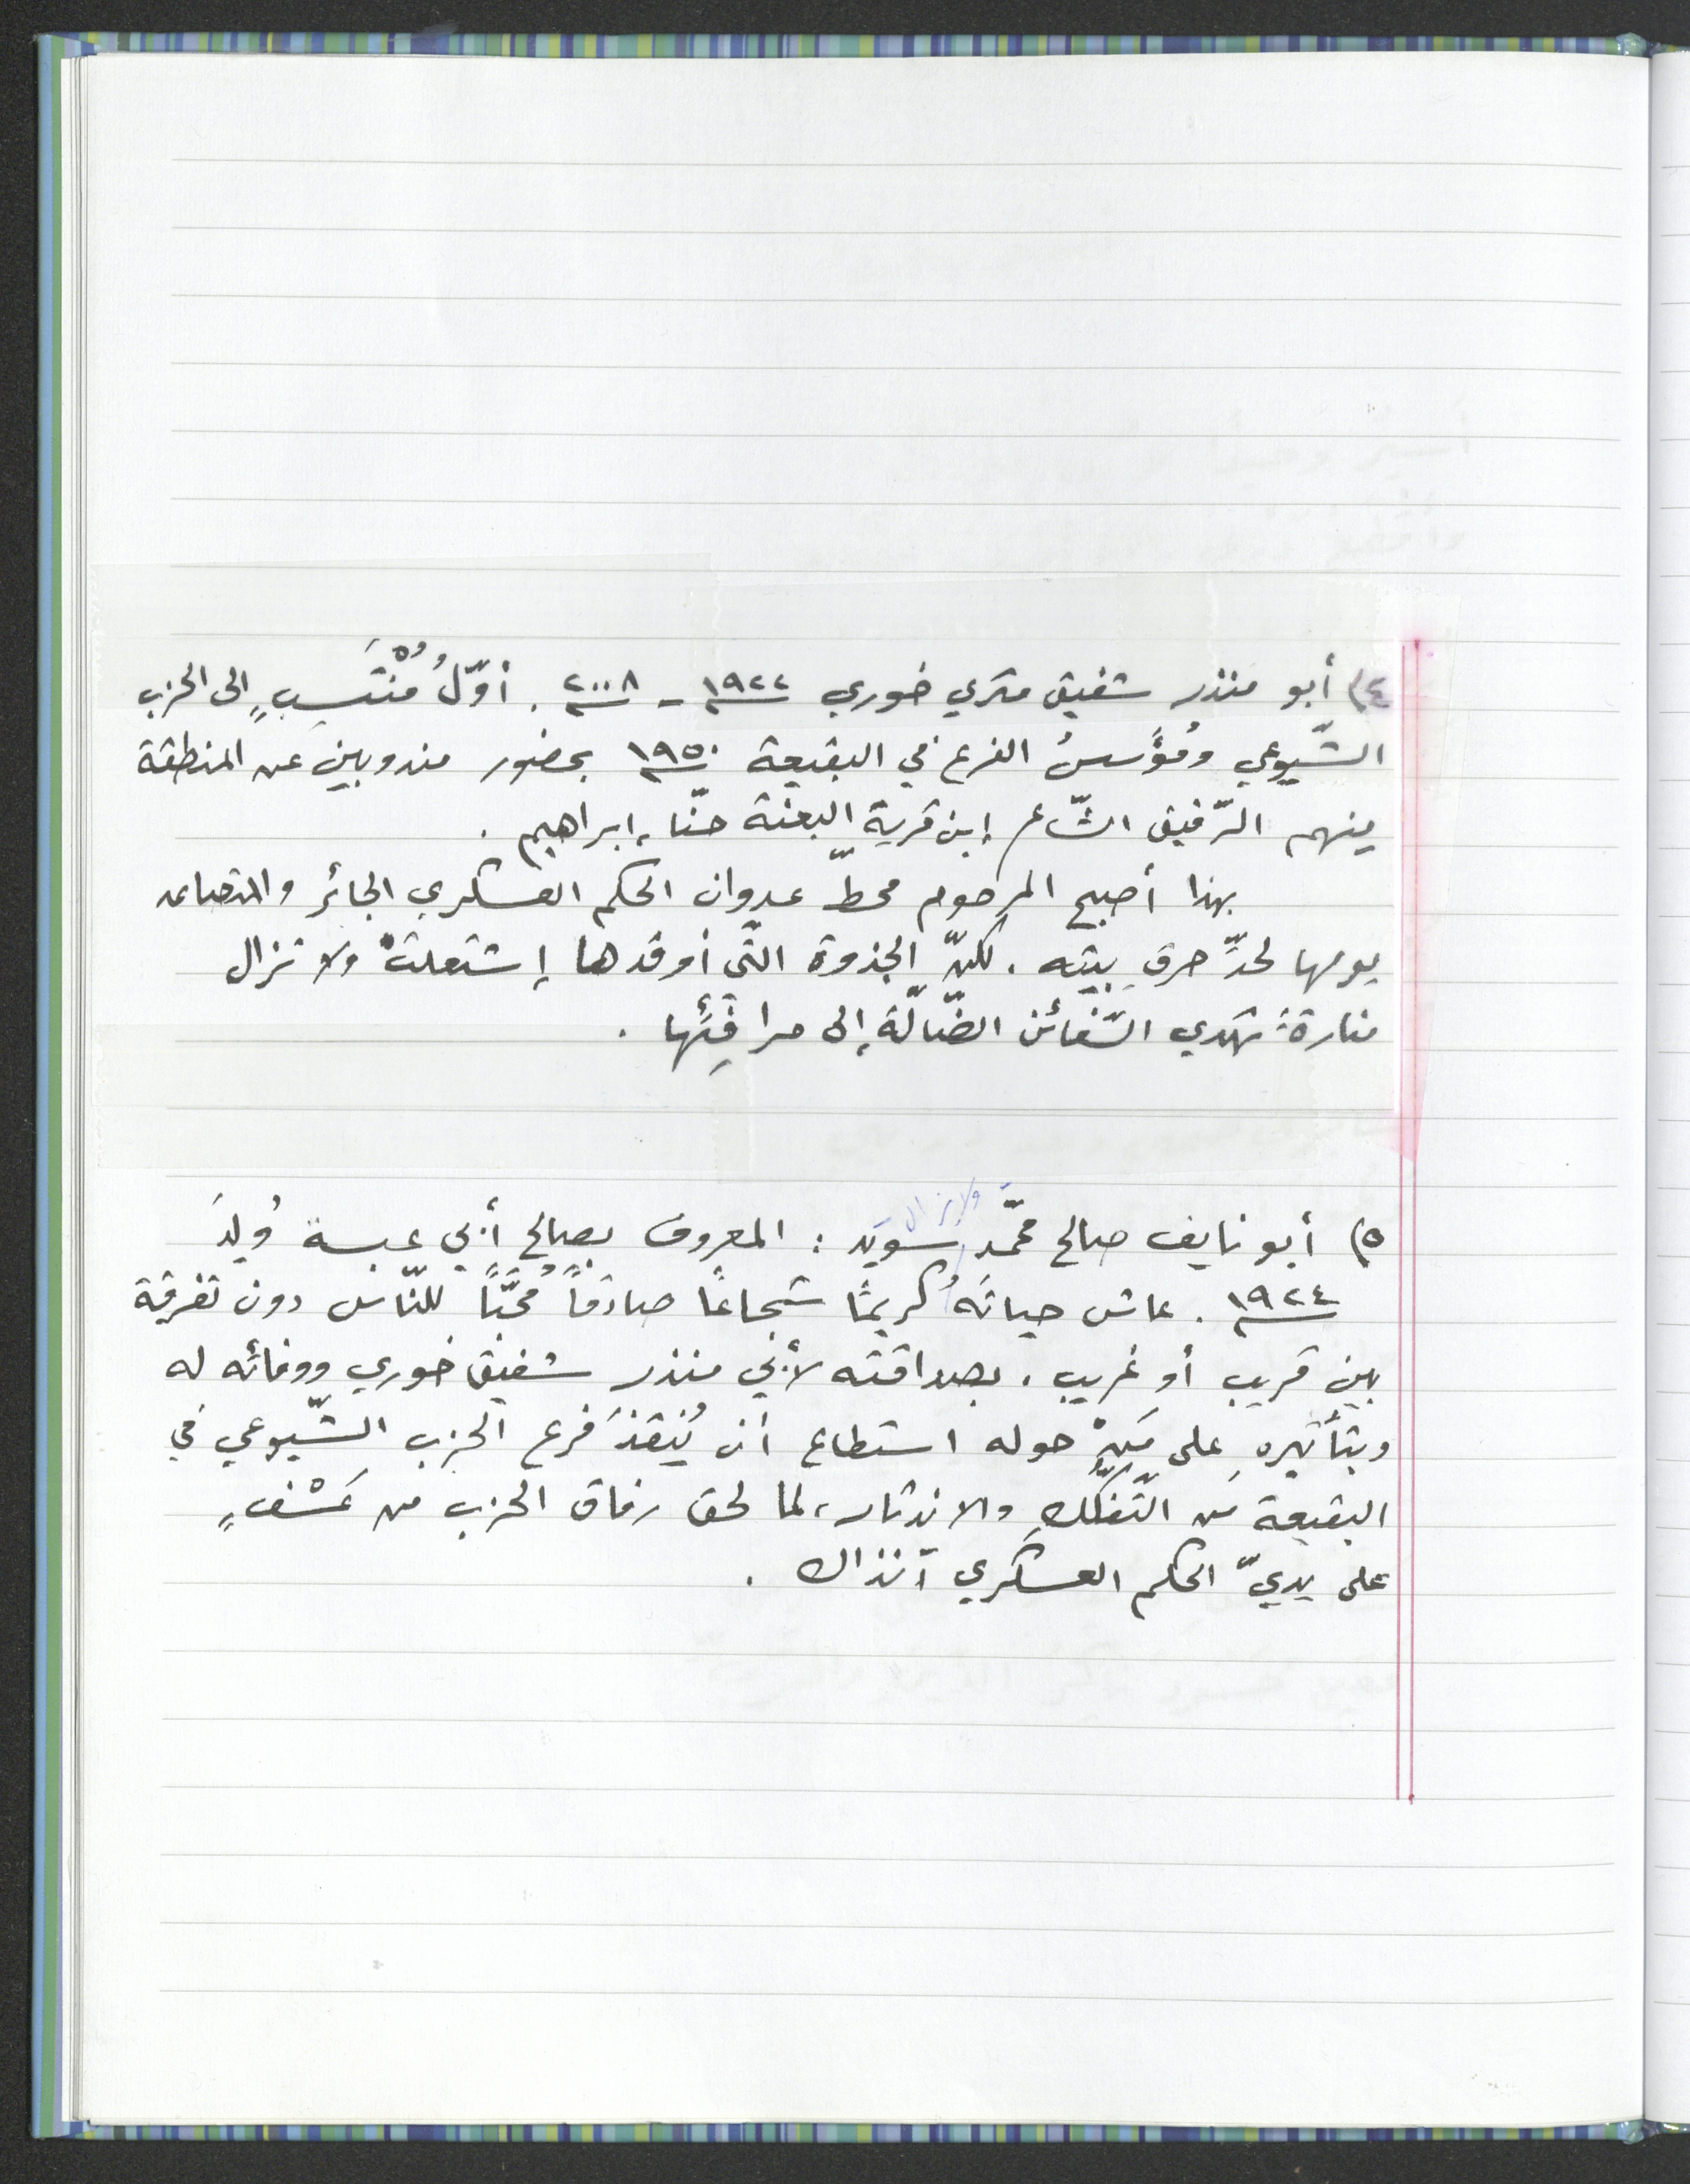 ٤) أبو منذر شفيق متري خوري ١٩٢٢ - ٢٠٠٨ . أوّلُ مُنْتَسِبٍ إلى الحزب
الشّيوعي ومُؤَسسُ الفرع في البقيعة ١٩٥٠ بحضور مندوبين عن المنطقة
منهم الرّفيق الشّاعر إبن قرية البعنة حنّا إبراهيم .
بهذا أصبح المرحوم محطّ عدوان الحكم العسكري الجائر والمتصاعد
يومها لحدِّ حرقِ بيته . لكنّ الجذوة الّتي أوقدها إشتعلتْ ولا تزال
منارةً تهدي السّفائن الضّالّة إلى مرافِئها .
ولا يزال
٥) أبو نايف صالح محمّد سويَد : المعروف بصالح أبي عبسة وُلِدَ
١٩٢٤ . عاش حياتَهُ كريمًا شجاعًا صادقًا مُحبًّا للنّاس دون تفرقة
بين قريب أو غريب . بصداقته لأبي منذر شفيق خوري ووفائه له
وبتأثيرِه على مَنْ حوله استطاع أن يُنقذَ فرع الحزب الشّيوعي في
البقيعة من التّفكّكِ والاندثار، لما لحق رفاق الحزب من عَسْفٍ
على يديّ الحكم العسكري آنذاك .